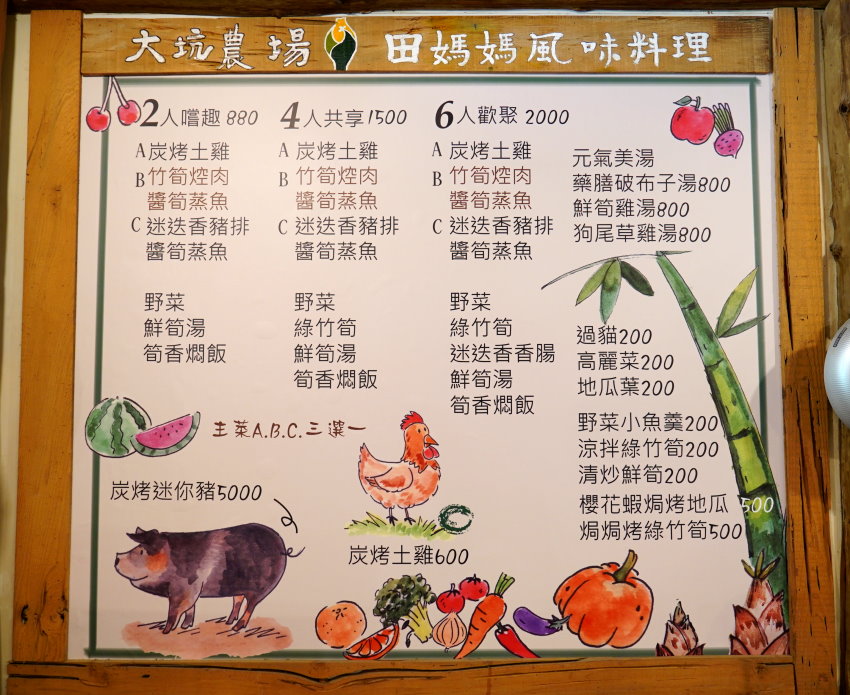 大坑農場 田媽媽風味料理
2人嚐趣 880
A 炭烤土雞
B 竹筍焢肉
醬筍蒸魚
C 迷迭香豬排
醬筍蒸魚
野菜
鮮筍湯
筍香燜飯
4人共享 1500
A 炭烤土雞
B 竹筍焢肉
醬筍蒸魚
C 迷迭香豬排
醬筍蒸魚
野菜
綠竹筍
鮮筍湯
筍香燜飯
6人歡聚 2000
A 炭烤土雞
B 竹筍焢肉
醬筍蒸魚
C 迷迭香豬排
醬筍蒸魚
野菜
綠竹筍
迷迭香香腸
鮮筍湯
筍香燜飯
主菜A.B.C.三選一
元氣美湯
藥膳破布子湯800
鮮筍雞湯800
狗尾草雞湯800
過貓200
高麗菜200
地瓜葉200
野菜小魚羹200
涼拌綠竹筍200
清炒鮮筍200
櫻花蝦焗烤地瓜 500
焗焗烤綠竹筍500
炭烤迷你豬5000
炭烤土雞600